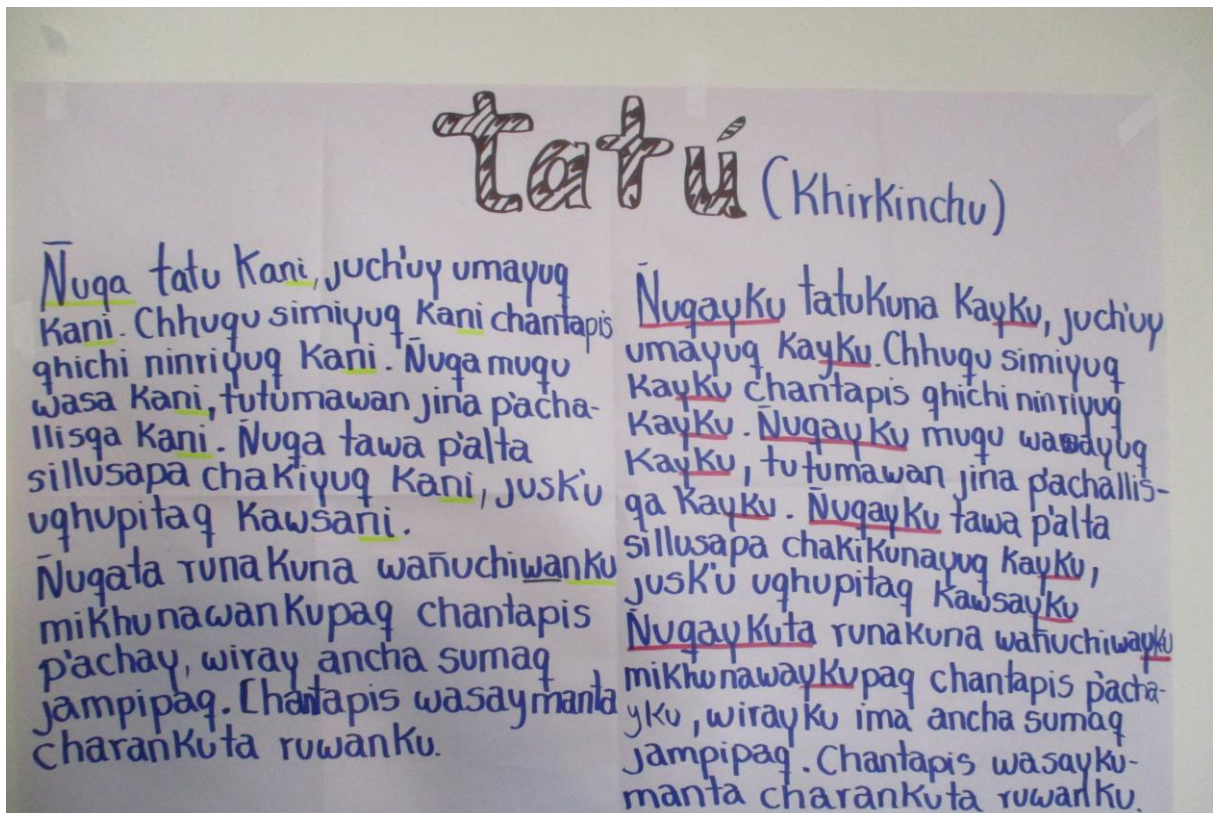 tatú (Khirkinchu)
Ñuqa tatu Kani, juch'uy umayuq
Kani. Chhuqu simiyuq Kani chantapis
qhichi ninriyuq Kani. Ñuqa muqu
wasa Kani, tutumawan jina p'acha-
llisqa Kani. Ñuqa tawa p'alta
sillusapa chaKiyuq Kani, jusk'u
uqhupitaq Kawsani.
Ñuqata runaKuna wañuchiwanku
miKhunawanKupaq chantapis
p'achay, wiray ancha sumaq
jampipaq. Chantapis wasaymanta
charanKuta ruwanKu.
ÑuqayKu tatuKuna KayKu, juch'uy
umayuq KayKu. Chhuqu simiyuq
KayKu chantapis qhichi ninriyuq
KayKu. ÑuqayKu muqu wasayuq
KayKu, tutumawan jina p'achallis-
qa KayKu. ÑuqayKu tawa p'alta
sillusapa chaKiKunayuq KayKu,
jusK'u uqhupitaq KawsayKu
ÑuqayKuta runaKuna wañuchiwayku
miKhunawayKupaq chantapis p'acha-
yKu, wirayKu ima ancha sumaq
jampipaq. Chantapis wasayku-
manta charanKuta ruwanKu.